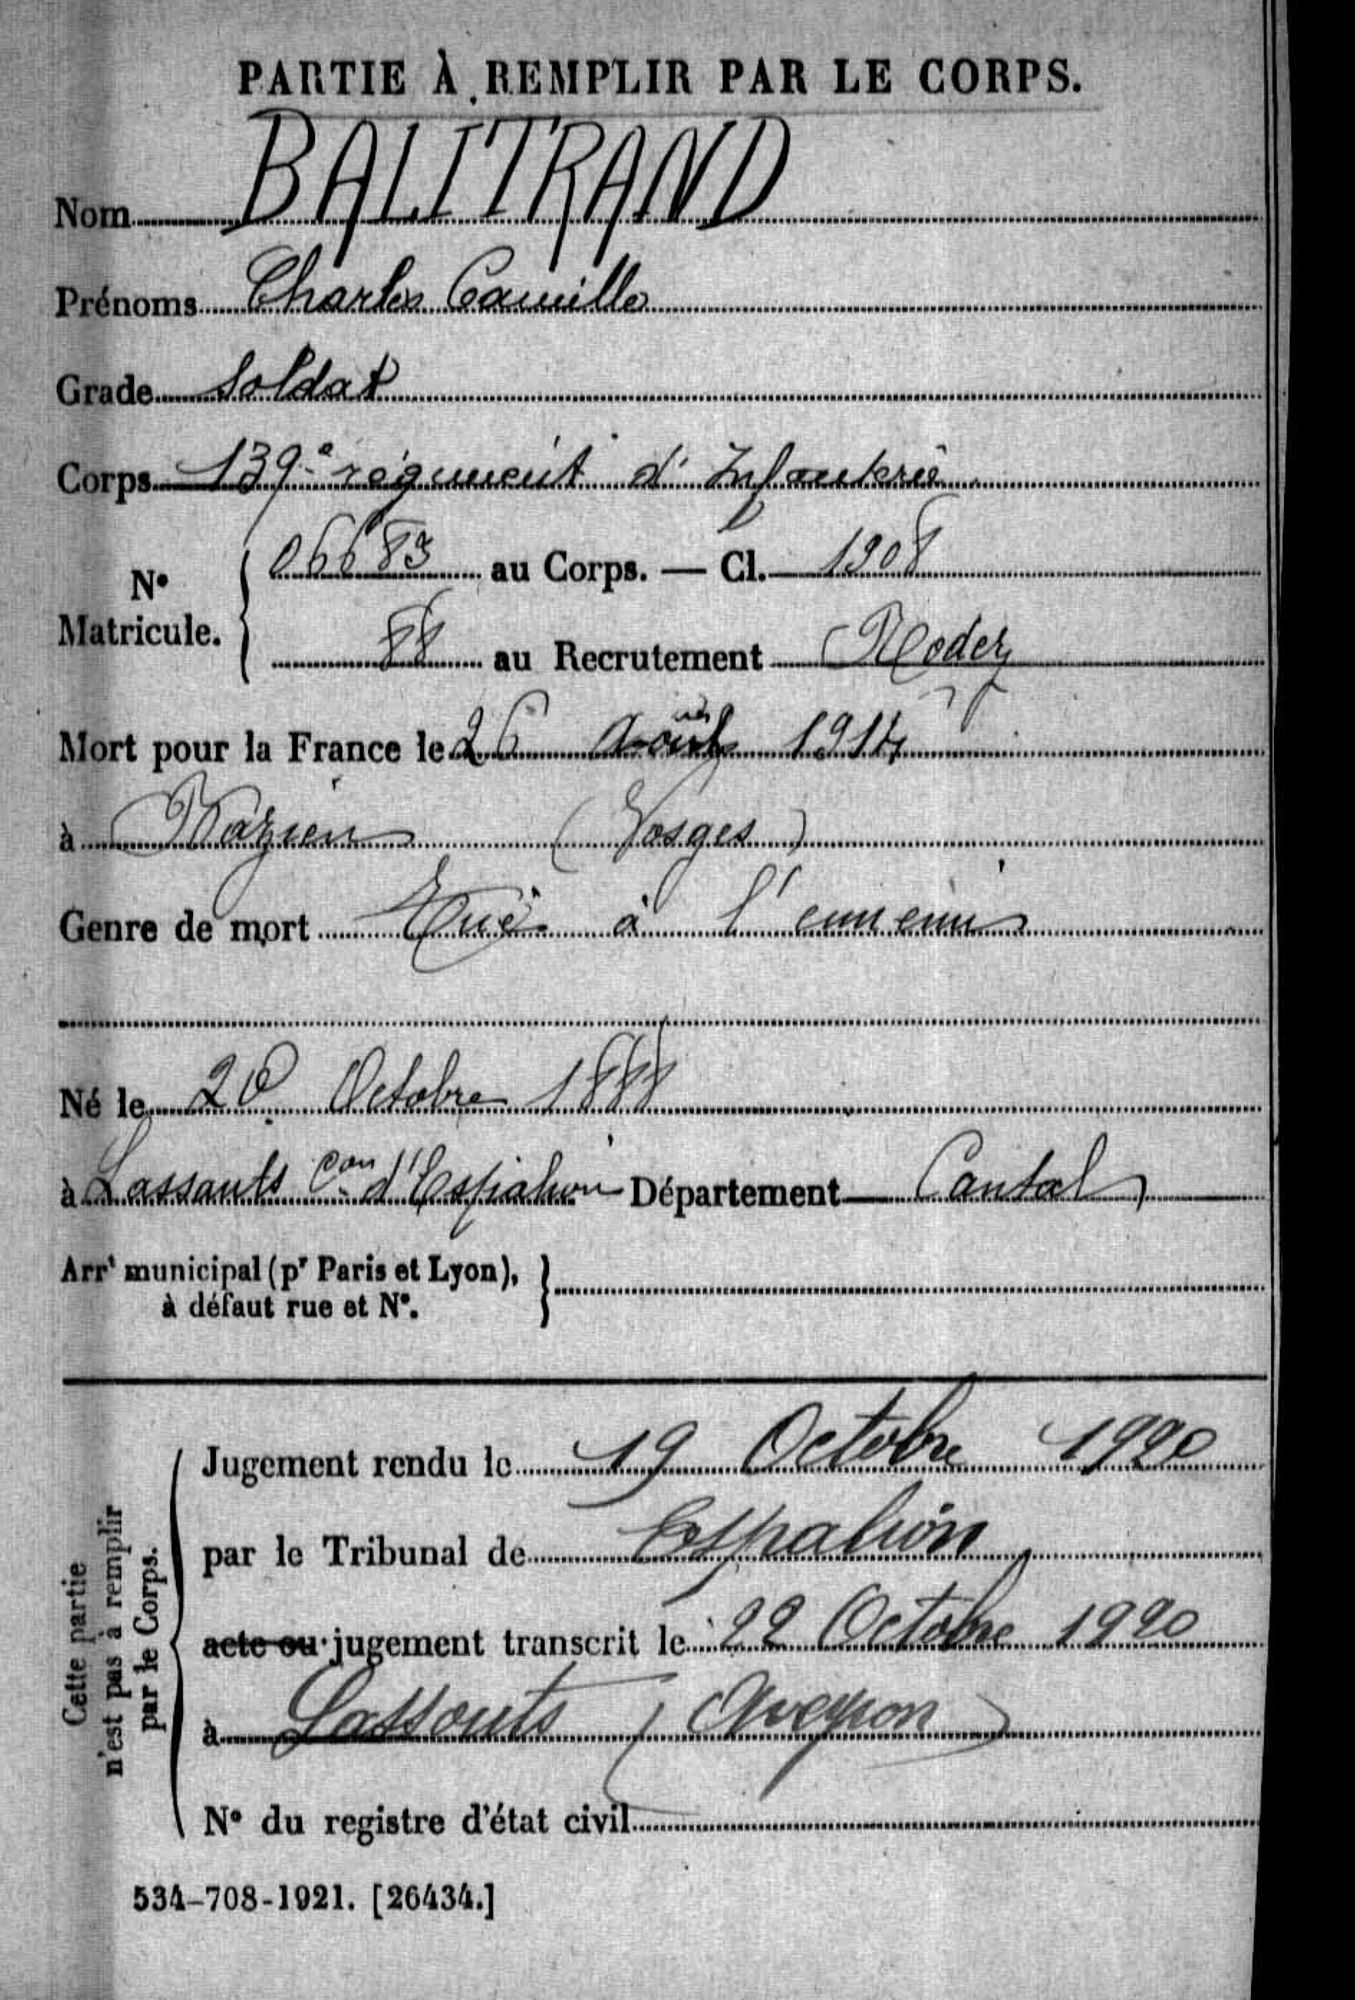 PARTIE À REMPLIR PAR LE CORPS.
Nom BALITRAND
Prénoms Charles Camille
Grade Soldat
Corps 139e régiment d'Infanterie
N° Matricule. 06683 au Corps. — Cl. 1908
88 au Recrutement Rodez
Mort pour la France le 26 Août 1914
à Bazien (Vosges)
Genre de mort Tué à l'ennemi
Né le 20 Octobre 1888
à Lassauts Con d'Espalion Département Cantal
Arrt municipal (pr Paris et Lyon),
à défaut rue et N°.
Cette partie
n'est pas à remplir
par le Corps.
Jugement rendu le 19 Octobre 1920
par le Tribunal de Espalion
acte ou jugement transcrit le 22 Octobre 1920
à Lassouts (Aveyron)
N° du registre d'état civil
534-708-1921. [26434.]